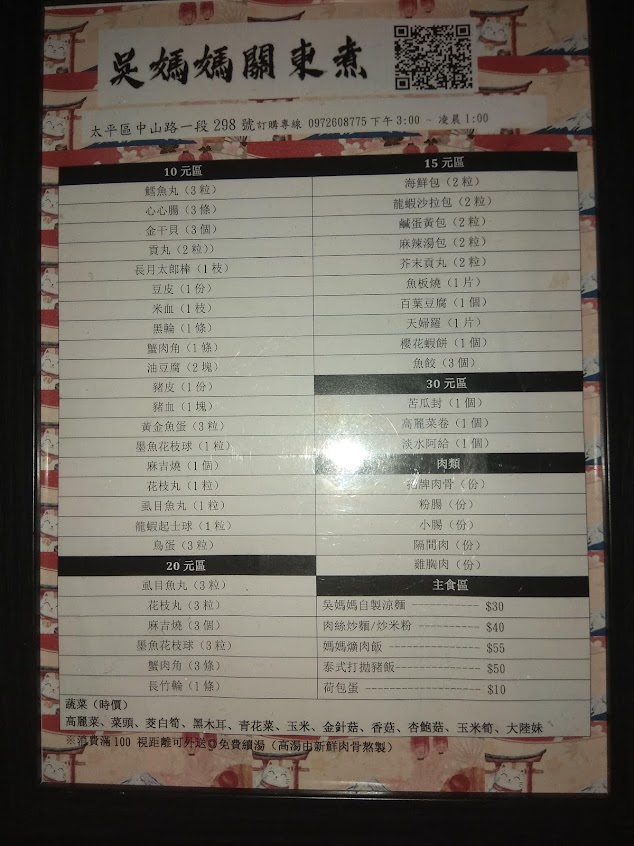 吳媽媽關東煮
太平區中山路一段 298 號訂購專線 0972608775 下午 3:00 ~ 凌晨 1:00
10 元區
鱈魚丸（3 粒）
心心腸（3 條）
金干貝（3 個）
貢丸（2 粒））
長月太郎棒（1 枝）
豆皮（1 份）
米血（1 枝）
黑輪（1 條）
蟹肉角（1 條）
油豆腐（2 塊）
豬皮（1 份）
豬血（1 塊）
黃金魚蛋（3 粒）
墨魚花枝球（1 粒）
麻吉燒（1 個）
花枝丸（1 粒）
虱目魚丸（1 粒）
龍蝦起士球（1 粒）
鳥蛋（3 粒）
20 元區
虱目魚丸（3 粒）
花枝丸（3 粒）
麻吉燒（3 個）
墨魚花枝球（3 粒）
蟹肉角（3 條）
長竹輪（1 條）
15 元區
海鮮包（2 粒）
龍蝦沙拉包（2 粒）
鹹蛋黃包（2 粒）
麻辣湯包（2 粒）
芥末貢丸（2 粒）
魚板燒（1 片）
百葉豆腐（1 個）
天婦羅（1 片）
櫻花蝦餅（1 個）
魚餃（3 個）
30 元區
苦瓜封（1 個）
高麗菜卷（1 個）
淡水阿給（1 個）
肉類
招牌肉骨（份）
粉腸（份）
小腸（份）
隔間肉（份）
雞胸肉（份）
主食區
吳媽媽自製涼麵 ------------ $30
肉絲炒麵/炒米粉 ------------ $40
媽媽爌肉飯 ---------------- $55
泰式打拋豬飯--------------- $50
荷包蛋 -------------------- $10
蔬菜（時價）
高麗菜、菜頭、茭白筍、黑木耳、青花菜、玉米、金針菇、香菇、杏鮑菇、玉米筍、大陸妹
※消費滿 100 視距離可外送◎免費續湯（高湯由新鮮肉骨熬製）